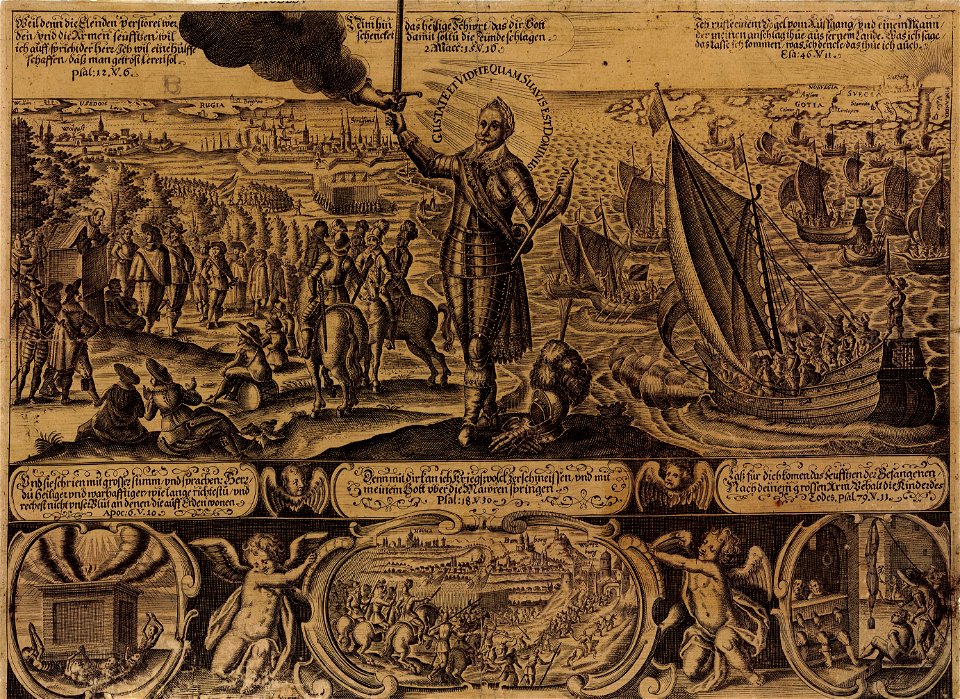 Weil denn die Elenden verstöret wer
den, und die Armen seufftzen, wil
ich auff, spricht der herr. Ich wil eine hülffe
schaffen, daß man getrost leren sol.
Psal: 12, V. 6.
Nim hin das heilige Schwert, das dir Gott
schencket, damit soltu die feinde schlagen
2. Macc: 15 V. 16
Ich ruffe einem Vogel vom Auffgang, und einem Mann,
der meinen anschlag thue, aus fernem Lande. Was ich sage,
das lasse ich kommen, was ich dencke, das thue ich auch.
Esa: 46. V. 11.
B
GUSTATE ET VIDETE QUAM SUAVIS EST DOMINUS
USEDOM
RUGIA
Wolgast
NORVEGIA
SVECIA
GOTIA
Und sie schrien mit grosser stimm, und sprachen: Herr
du heiliger und warhafftiger, wie lange richtestu, und
rechest nicht unser Blut an denen die auff Erden wonen
Apoc: 6. V. 10
Denn mit dir kan ich Kriegsvolck zerschmeissen, und mit
meinem Gott uber die Mauren springen.
Psal: 18 V. 30
Laß für dich komen das seufftzen der Gefangenen
Nach deinem grossen Arm Behalt die Kinder des
Todes, psal. 79. V. 11.